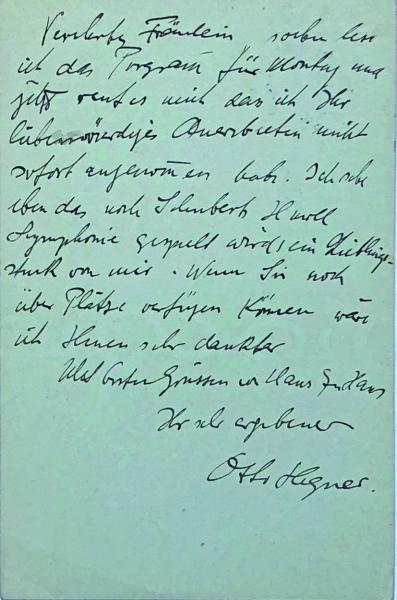 Verehrtes Fräulein soeben lese
ich das Program für Montag und
jetzt reut es mich das ich Ihr
liebenswürdiges Anerbieten nicht
sofort angenommen habe. Ich sehe
eben das noch Schuberts H moll
Symphonie gespielt wird; ein Lieblings-
stück von mir. Wenn Sie noch
über Plätze verfügen können wäre
ich Ihnen sehr dankbar
Mit besten Grüssen von Haus zu Haus
Ihr sehr ergebener
Otto Hegner.